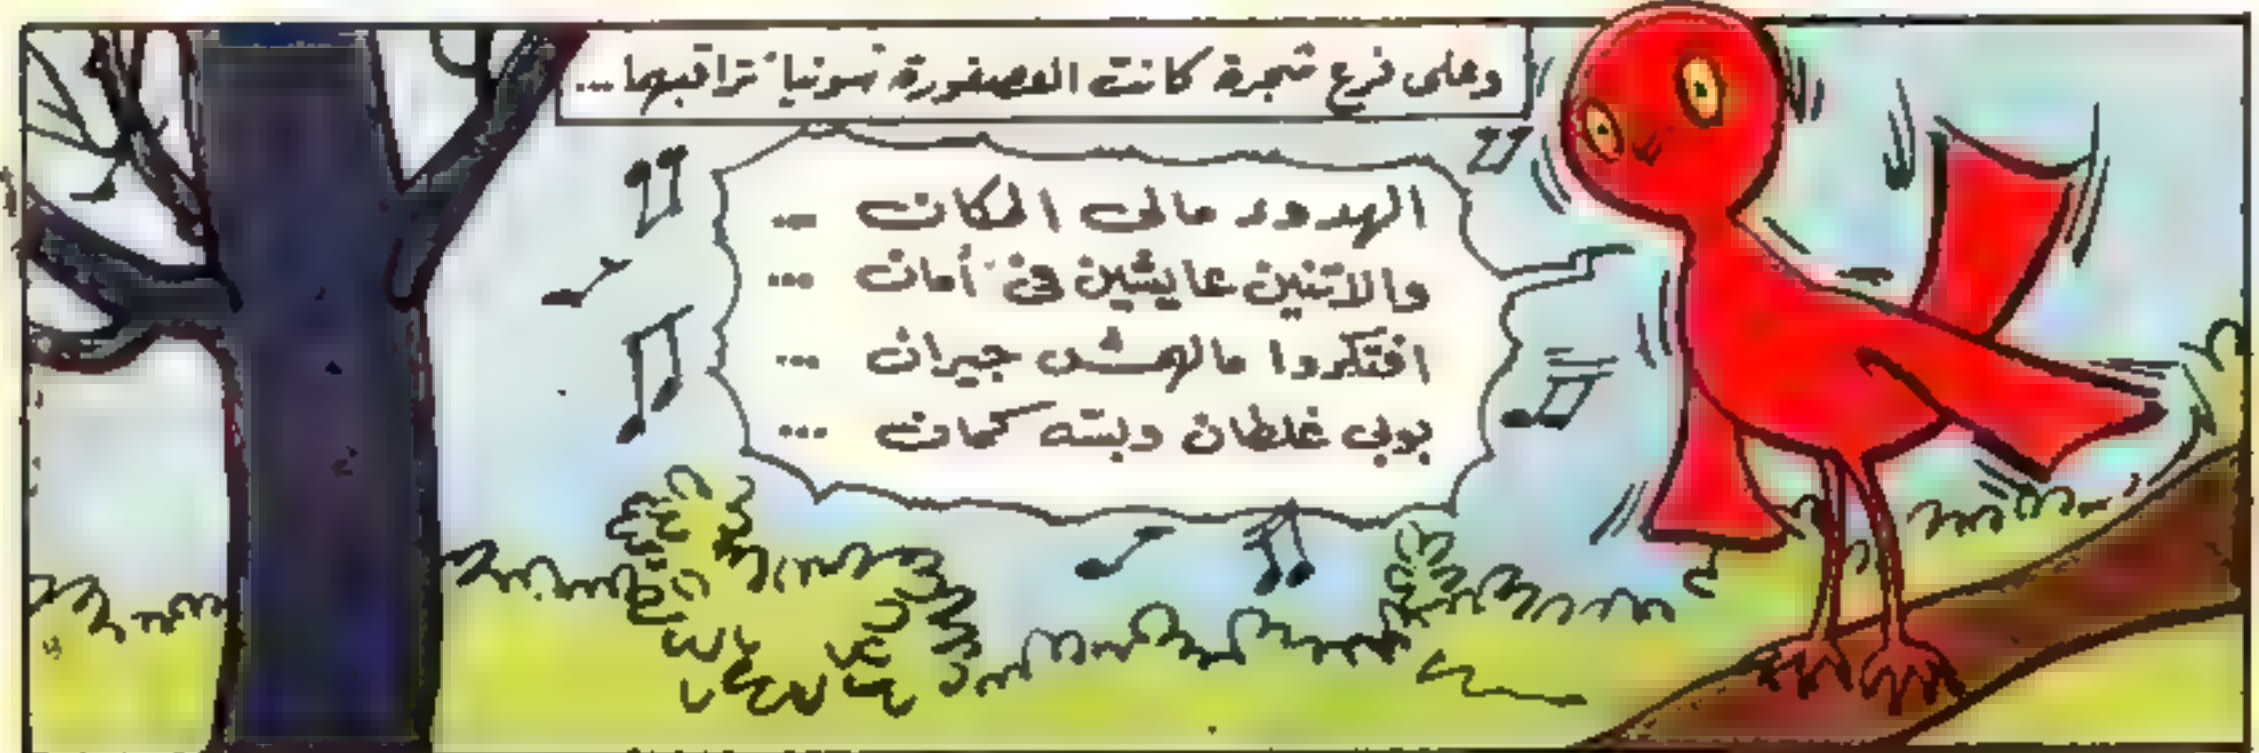 وعلى فرع شجرة كانت العصفورة "سونيا" تراقبها...
الهدوء مالى المكان ...
والاتنين عايشين فى أمان ...
افتكروا مالهمش جيران ...
بوبى غلطان وبسه كمان ...